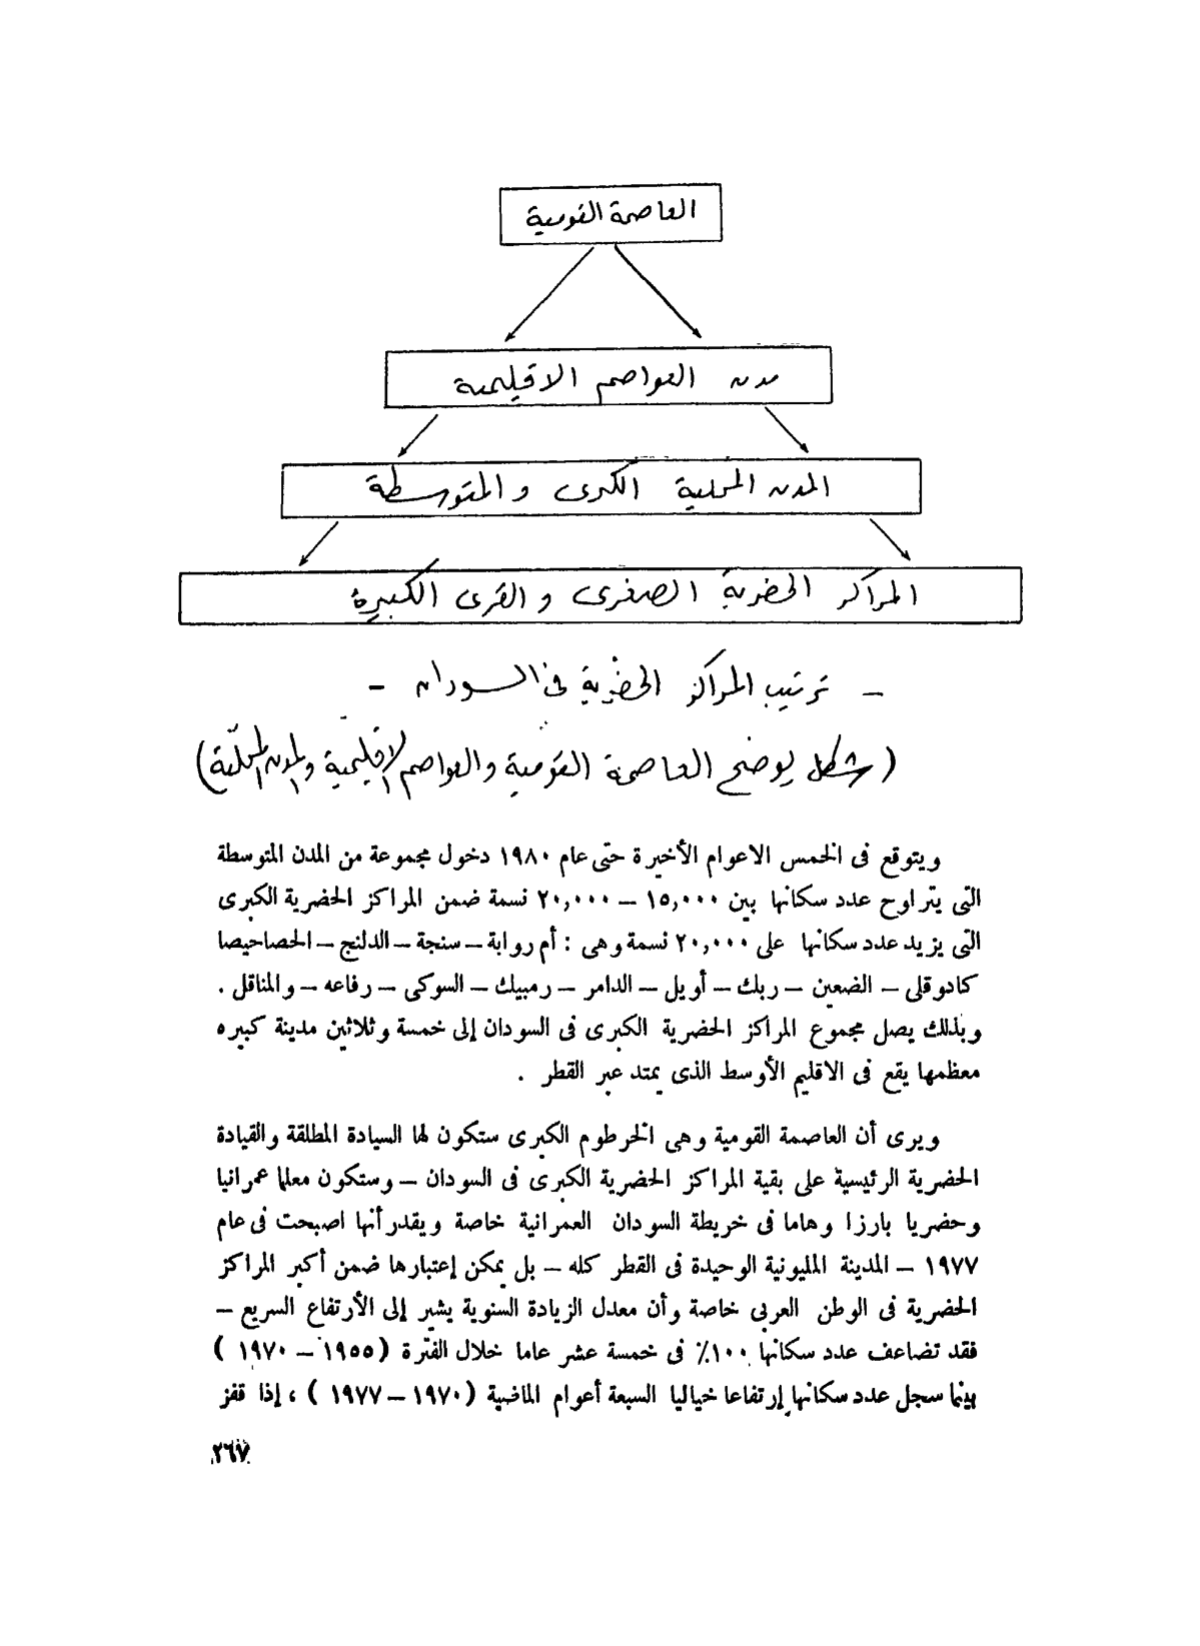 العاصمة القومية
مدن العواصم الاقليمية
المدن المحلية الكبرى والمتوسطة
المراكز الحضرية الصغرى والقرى الكبيرة
– ترتيب المراكز الحضرية فى السودان –
(شكل يوضح العاصمة القومية والعواصم الاقليمية والمدن المحلّية)
ويتوقع فى الخمس الاعوام الأخيرة حتى عام ١٩٨٠ دخول مجموعة من المدن المتوسطة
التى يتراوح عدد سكانها بين ١٥,٠٠٠ – ٢٠,٠٠٠ نسمة ضمن المراكز الحضرية الكبرى
التى يزيد عدد سكانها على ٢٠,٠٠٠ نسمة وهى : أم روابة – سنجة – الدلنج – الحصاحيصا
كادوقلى – الضعين – ربك – أويل – الدامر – رمبيك – السوكى – رفاعه – والمناقل .
وبذلك يصل مجموع المراكز الحضرية الكبرى فى السودان إلى خمسة وثلاثين مدينة كبيره
معظمها يقع فى الاقليم الأوسط الذى يمتد عبر القطر .
ويرى أن العاصمة القومية وهى الخرطوم الكبرى ستكون لها السيادة المطلقة والقيادة
الحضرية الرئيسية على بقية المراكز الحضرية الكبرى فى السودان – وستكون معلما عمرانيا
وحضريا بارزا وهاما فى خريطة السودان العمرانية خاصة ويقدر أنها اصبحت فى عام
١٩٧٧ – المدينة المليونية الوحيدة فى القطر كله – بل يمكن إعتبارها ضمن أكبر المراكز
الحضرية فى الوطن العربى خاصة وأن معدل الزيادة السنوية يشير إلى الأرتفاع السريع –
فقد تضاعف عدد سكانها ١٠٠٪ فى خمسة عشر عاما خلال الفترة (١٩٥٥ – ١٩٧٠ )
بينما سجل عدد سكانها إرتفاعا خياليا السبعة أعوام الماضية (١٩٧٠ – ١٩٧٧ ) ، إذا قفز
٢٦٧